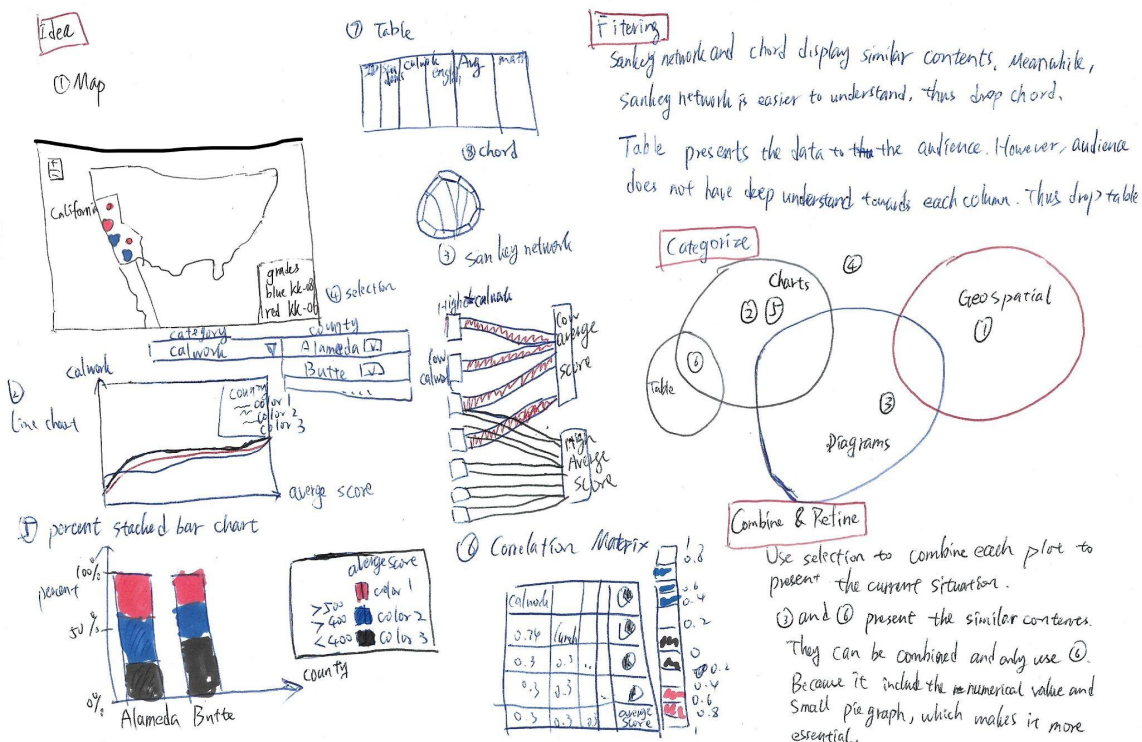 Idea
① Map
California
grades
blue KK-08
red KK-06
④ selection
category
calwork
county
Alameda
Butte
.....
② line chart
calwork
county
color 1
color 2
color 3
averge score
⑤ percent stacked bar chart
percent
100%
50%
0%
Alameda Butte
county
averge score
>500 color 1
>400 color 2
<400 color 3
⑦ Table
calwork
engli
Avg
math
⑧ chord
③ Sankey network
High calwork
low
calwork
low
average
score
High
Average
score
⑥ Correlation Matrix
calwork
0.74 lunch
0.3 0.3 ..
0.3 0.3
0.3 0.3 0.3 average
score
1
0.8
0.6
0.4
0.2
0
0.2
0.4
0.6
0.8
1
Fitering
Sankey network and chord display similar contents. Meanwhile,
Sankey network is easier to understand, thus drop chord.
Table presents the data to the audience. However, audience
does not have deep understand towards each column. Thus drop table
Categorize
Charts
② ⑤
④
Geospatial
①
⑥
Table
③
Diagrams
Combine & Refine
Use selection to combine each plot to
present the current situation.
③ and ⑥ present the similar contents.
They can be combined and only use ⑥.
Because it include the numerical value and
small pie graph, which makes it more
essential.